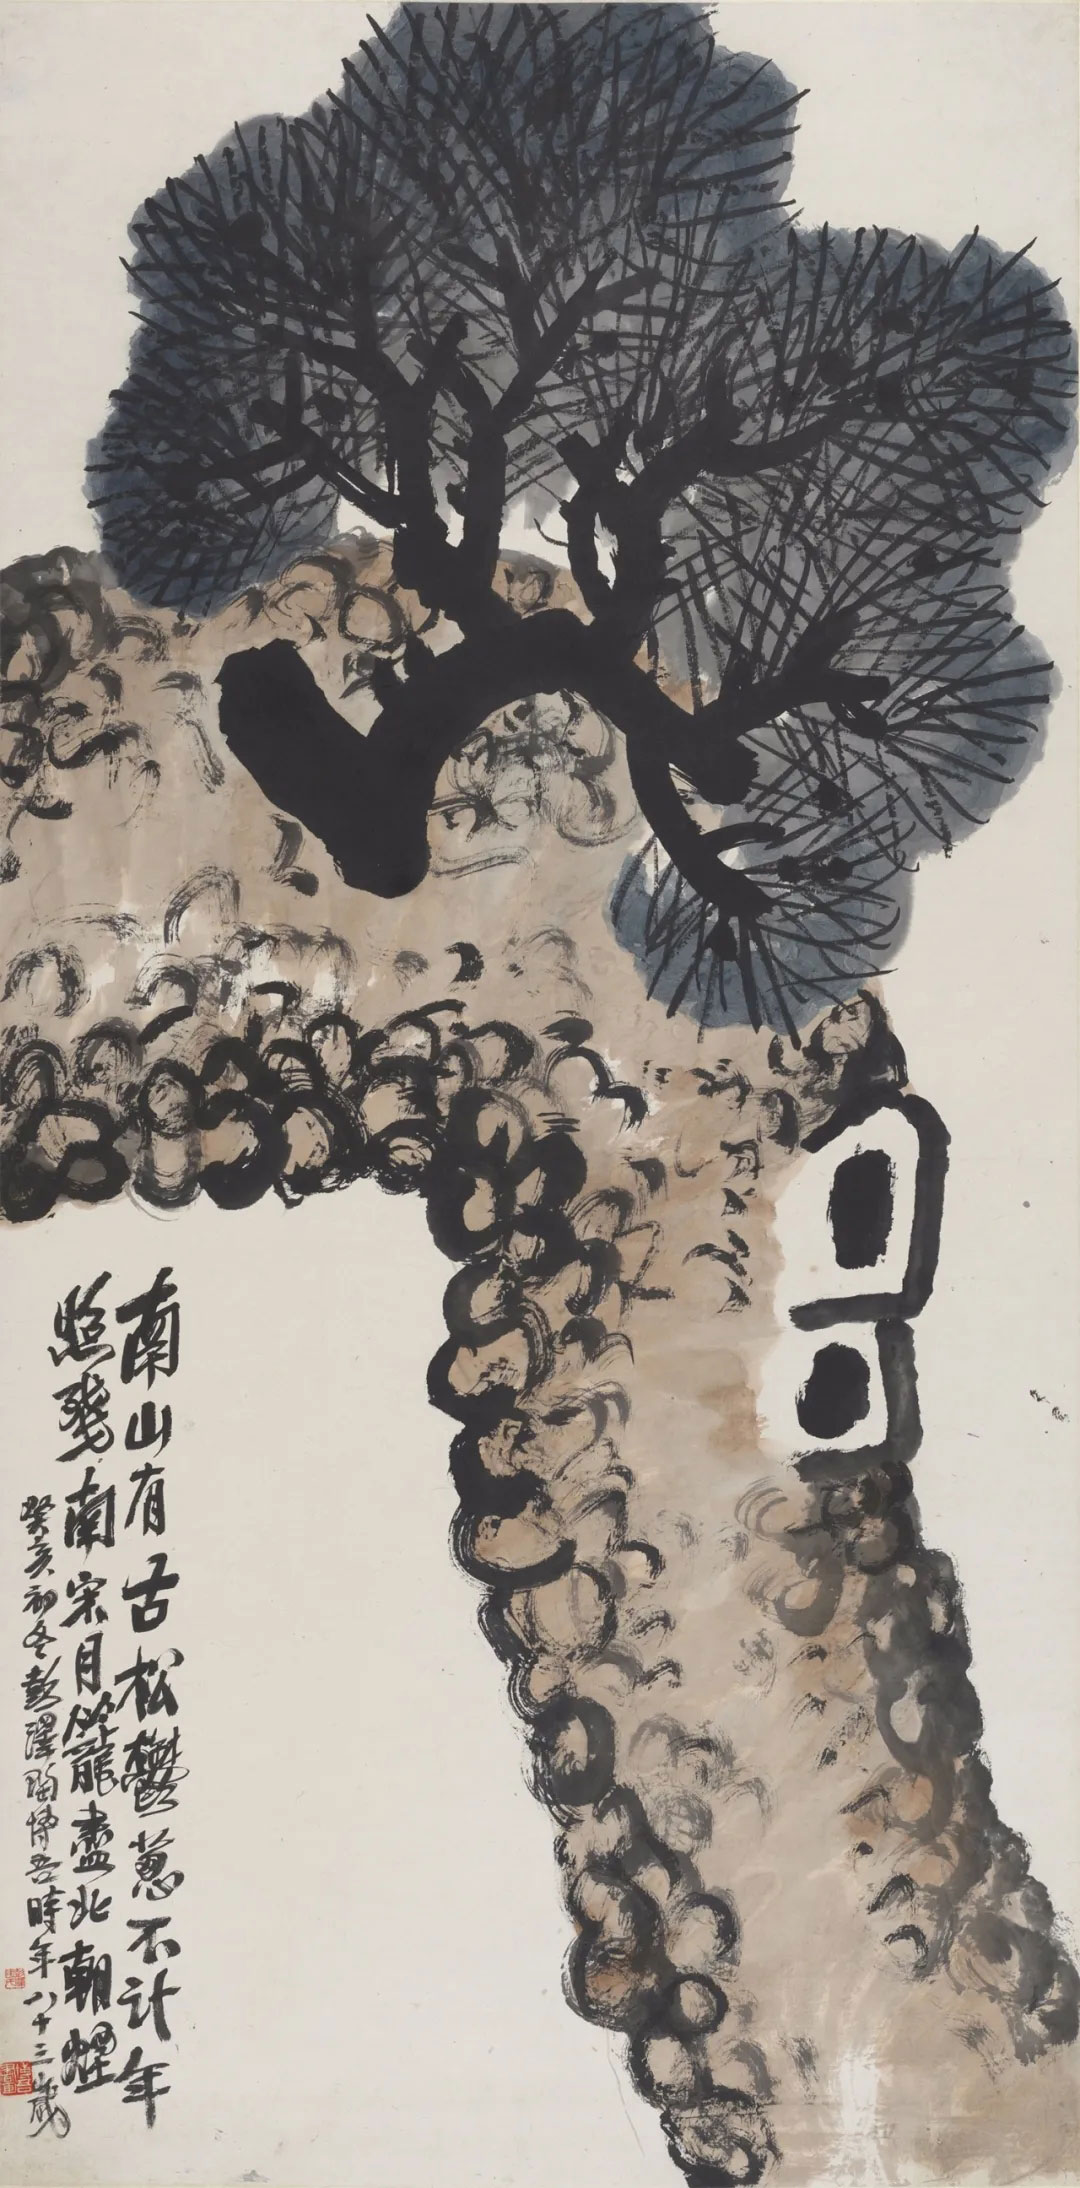 南山有古松鬱蔥不計年
照殘南宋月籠盡北朝煙
癸亥初冬彭澤陶博吾時年八十三歲